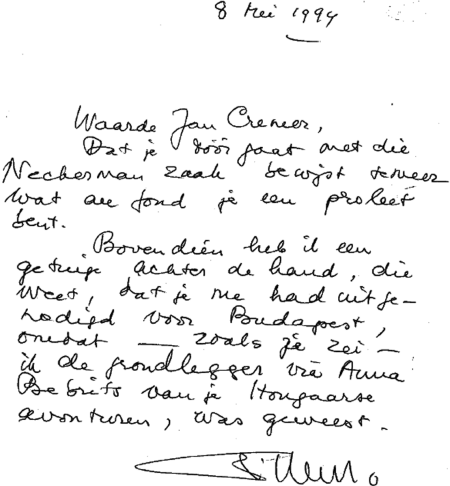 8 Mei 1994
Waarde Jan Cremer,
Dat je dóór gaat met die
Neckerman zaak bewijst temeer
wat au fond je een proleet
bent.
Bovendien heb ik een
getuige achter de hand, die
weet, dat je me had uitge-
nodigd voor Budapest,
omdat — zoals je zei —
ik de grondlegger via Anna
van je Hongaarse
avonturen, was geweest.